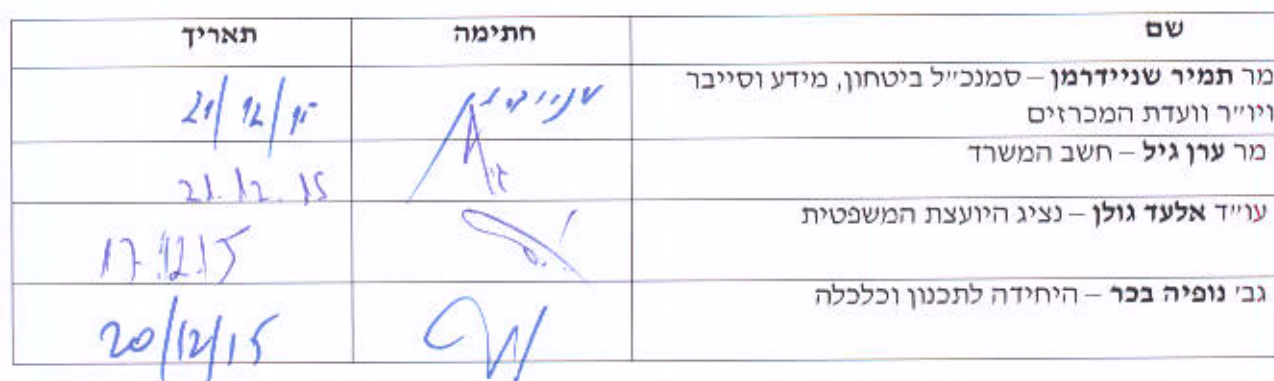 שם חתימה תאריך
מר תמיר שניידרמן – סמנכ״ל ביטחון, מידע וסייבר
ויו״ר וועדת המכרזים 21/12/15
מר ערן גיל – חשב המשרד 21.12.15
עו״ד אלעד גולן – נציג היועצת המשפטית 17.12.15
גב׳ נופיה בכר – היחידה לתכנון וכלכלה 20/12/15